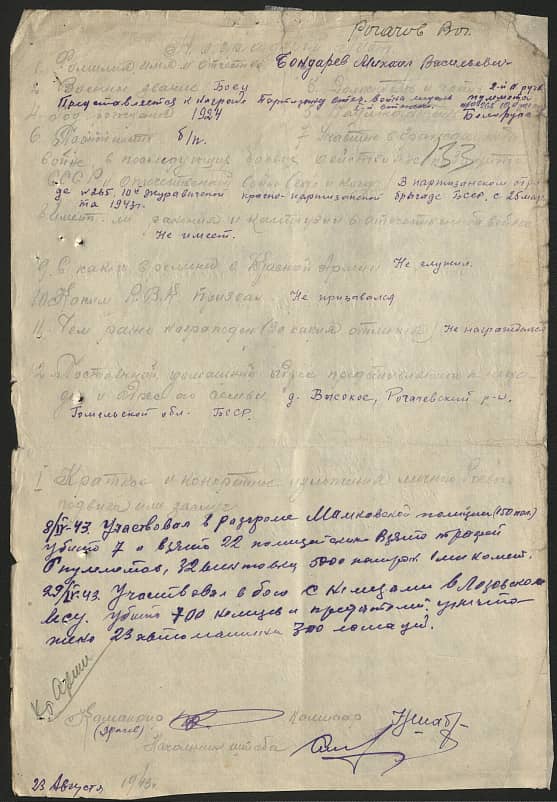 Рогачов Вог.
Наградной лист.
1. Фамилия имя и отчество Бондарев Михаил Васильевич
2. Военное звание Боец 5. Должность и часть 2-й н. руж.
Представляется к награде Партизану отеч. война медаль
1924 Беларус
6. Партийность б/п. 7. Участие в гражданской
133
войне и последующих боевых действиях по защите
СССР и отечественной войне (где и когда) В партизанском отря-
де № 265, 10й Журавичской красно-партизанской бригаде БССР, с 28 мар
та 1943 г.
8. Имеет ли ранения и контузии в отечественной войне
Не имеет.
9. С каких времени в Красной Армии Не служил.
10. Каким Р.В.К. призван Не призывался
11. Чем ранее награжден (за какие отличия) Не награждался
12. Постоянный домашний адрес представляемого к награ-
де и адрес его семьи д. Высокое, Рогачевский р-н.
Гомельской обл. БССР.
I Краткое и конкретное изложение личного боевого
подвига или заслуг
8/IV-43. Участвовал в разгроме полиции (150 чел)
убито 7 и взято 22 полицейских Взято трофей
пулеметов, 32 винтовки 5000 патрон 1 миномет.
29/IV-43. Участвовал в бою с немцами в Лозовском
лесу. Убито 700 немцев и предателей. уничто-
жено 23 автомашины 300 лошадей.
Ко Армии
Командир Комиссар
Начальник штаба
23 Августа 1943 г.